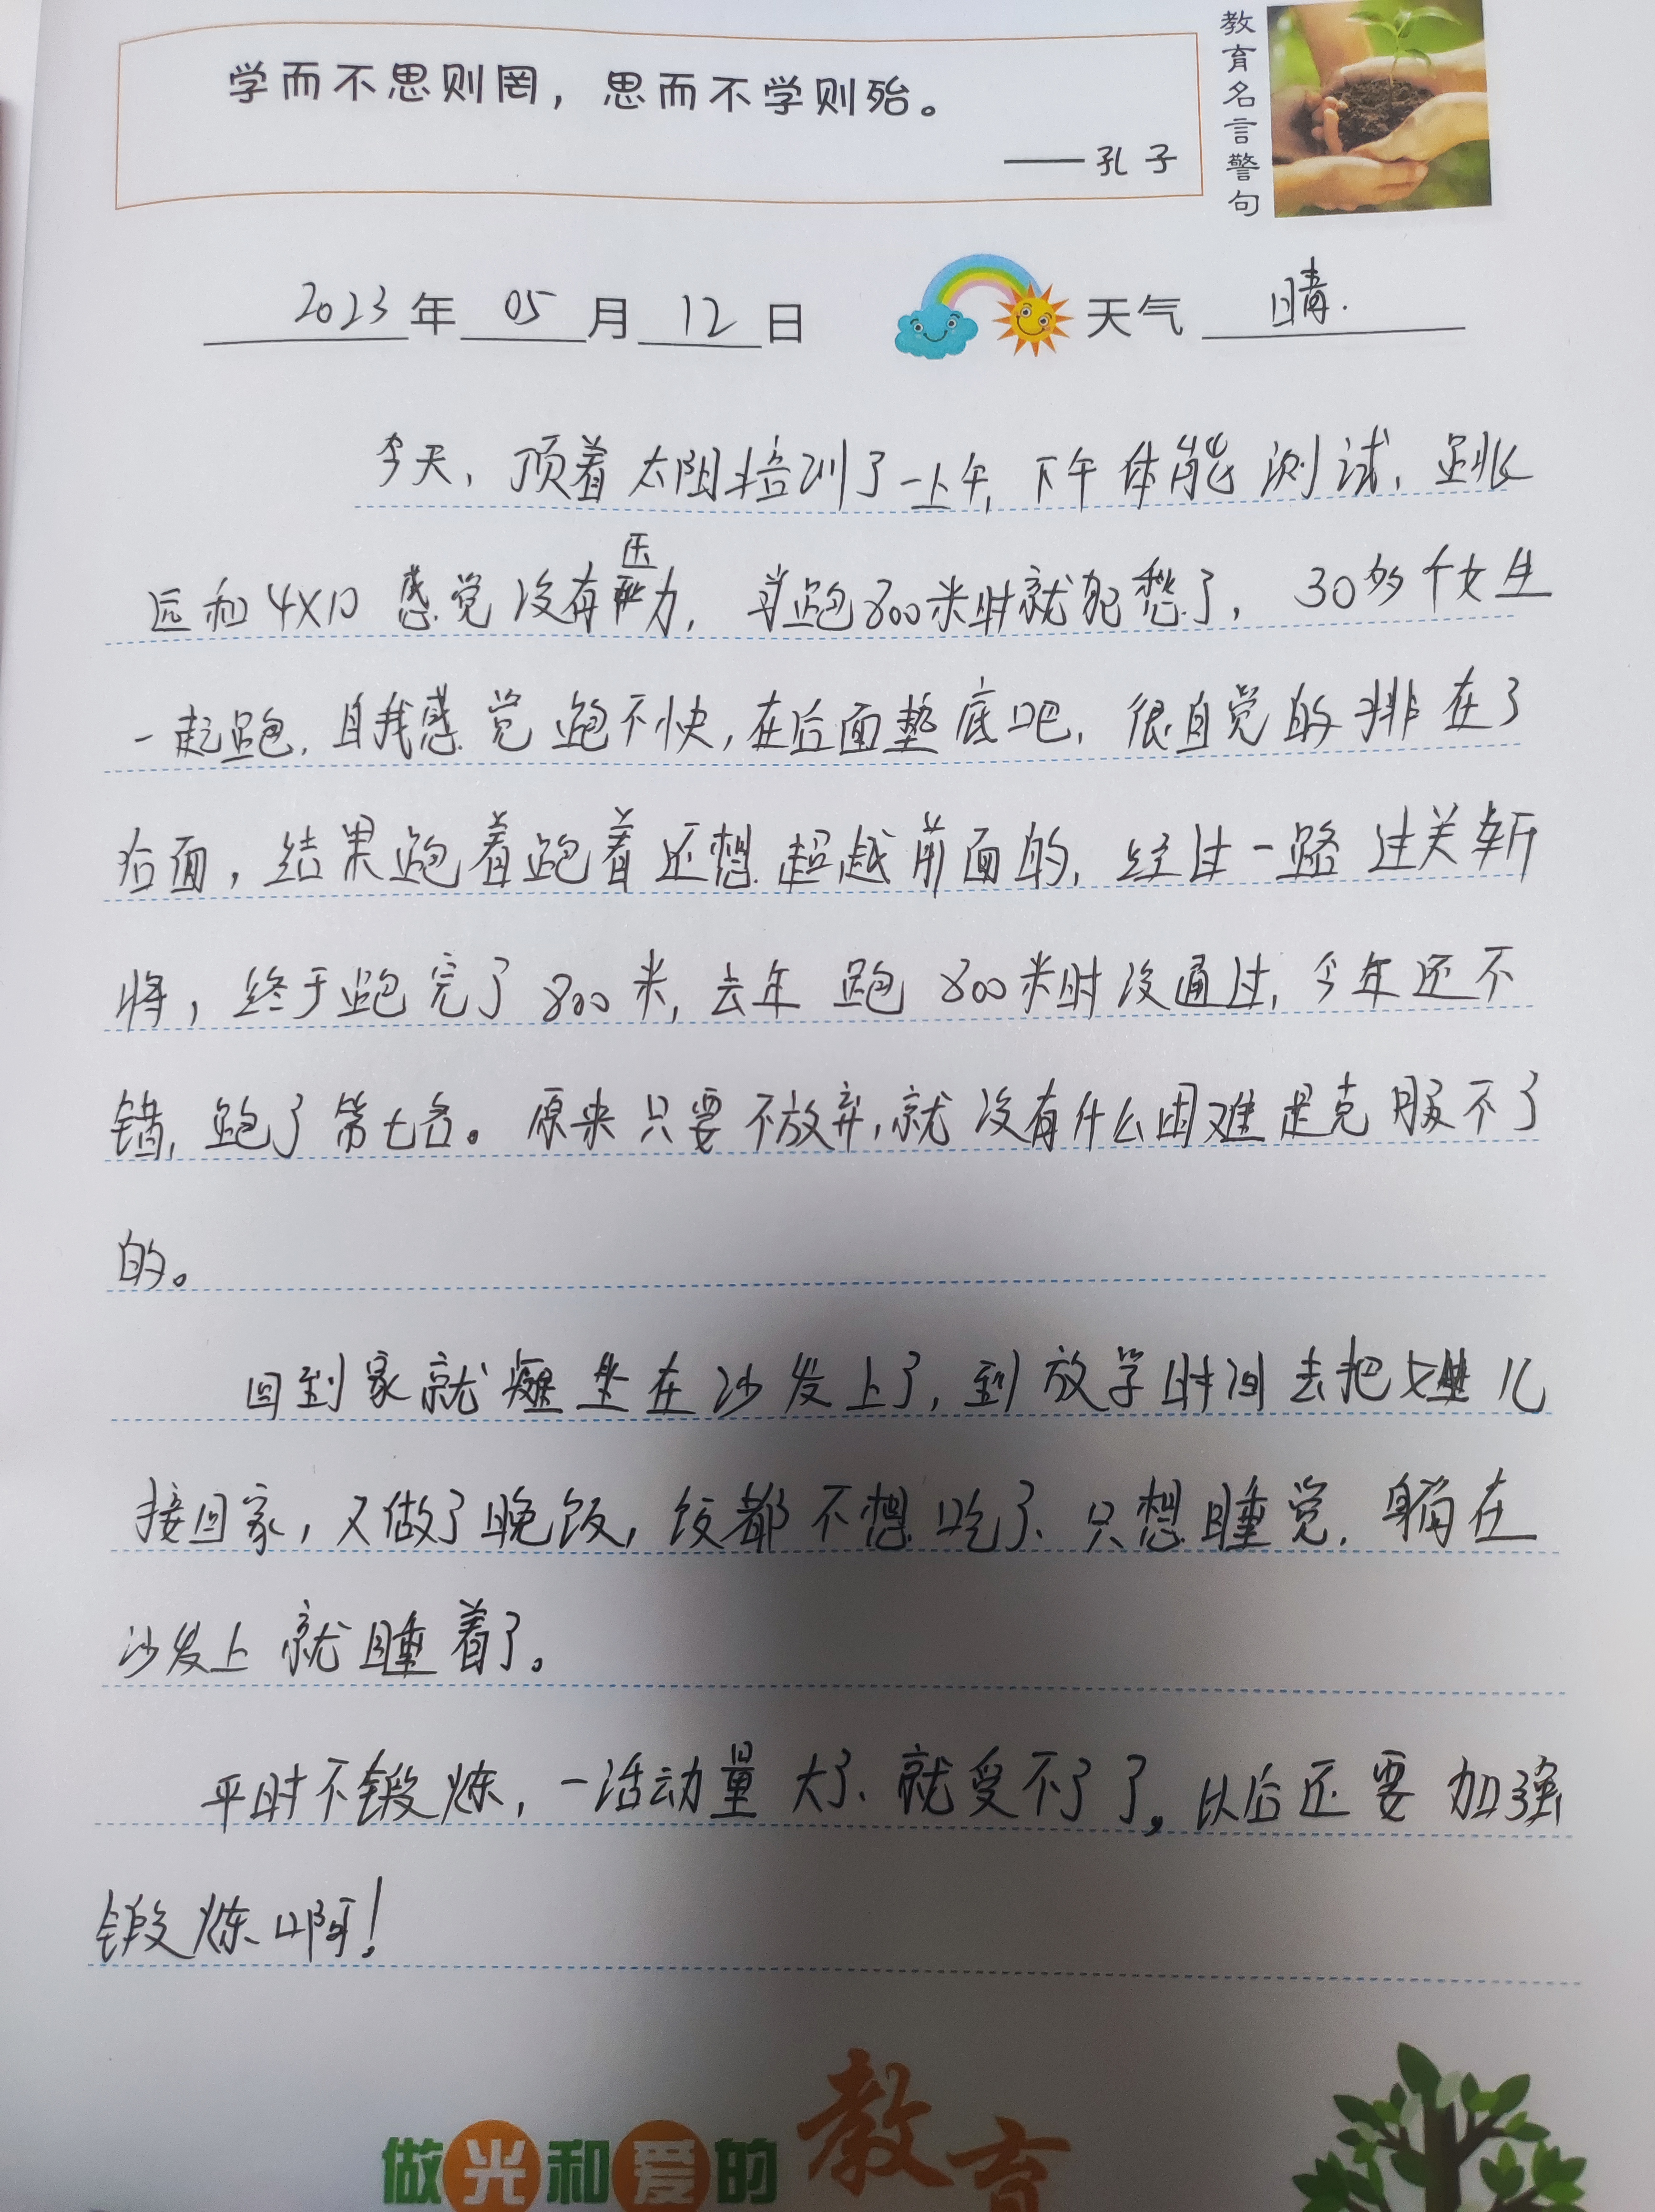 学而不思则罔，思而不学则殆。
——孔子
教育名言警句
2023年05月12日 天气 晴.
今天，顶着太阳培训了一上午，下午体能测试，跳
远和4X10感觉没有压力，当跑800米时就犯愁了，30多个女生
一起跑，自我感觉跑不快，在后面垫底吧，很自觉的排在了
后面，结果跑着跑着还想超越前面的，经过一路过关斩
将，终于跑完了800米，去年跑800米时没通过，今年还不
错，跑了第七名。原来只要不放弃，就没有什么困难是克服不了
的。
回到家就瘫坐在沙发上了，到放学时间去把娃儿
接回家，又做了晚饭，饭都不想吃了、只想睡觉，躺在
沙发上就睡着了。
平时不锻炼，一活动量大了、就受不了了，以后还要加强
锻炼啊！
做光和爱的教育